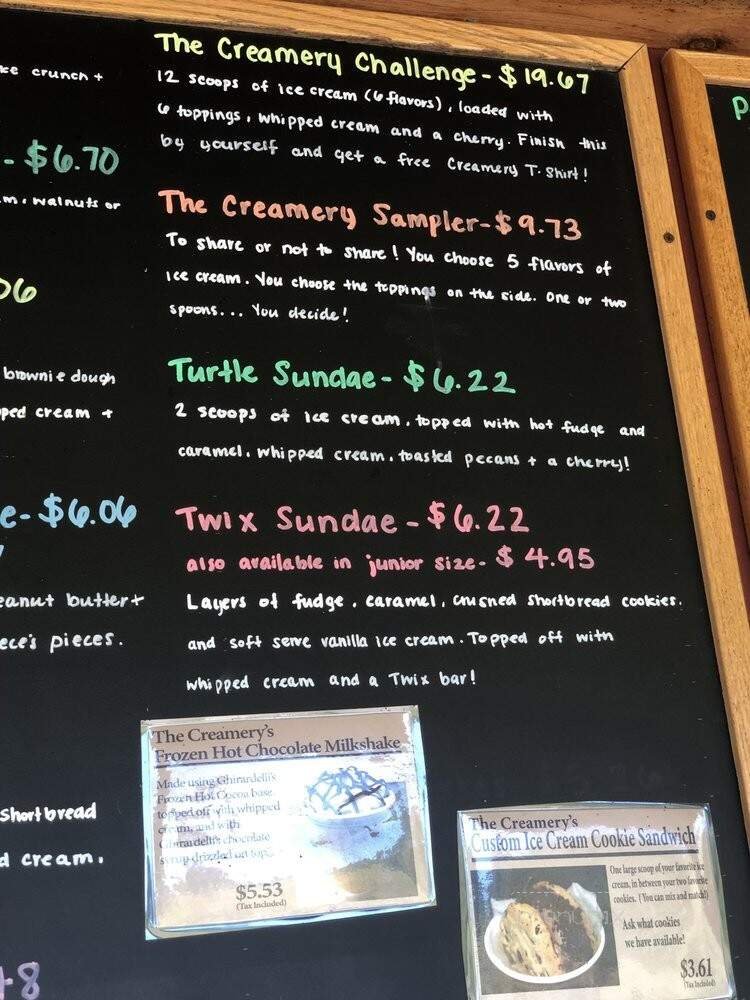 ke crunch +
- $6.70
m, walnuts or
06
brownie dough
ped cream +
e - $6.06
eanut butter +
ece's pieces.
shortbread
d cream.
48
The Creamery Challenge - $19.67
12 scoops of ice cream (6 flavors), loaded with
6 toppings, whipped cream and a cherry. Finish this
by yourself and get a free Creamery T-Shirt!
The Creamery Sampler - $9.73
To share or not to share! You choose 5 flavors of
ice cream. You choose the toppings on the side. One or two
spoons... You decide!
Turtle Sundae - $6.22
2 scoops of ice cream, topped with hot fudge and
caramel, whipped cream, toasted pecans + a cherry!
Twix Sundae - $6.22
also available in junior size - $4.95
Layers of fudge, caramel, crushed shortbread cookies,
and soft serve vanilla ice cream. Topped off with
whipped cream and a Twix bar!
The Creamery's
Frozen Hot Chocolate Milkshake
Made using Ghirardelli's
Frozen Hot Cocoa base
topped off with whipped
cream, and with
Ghirardelli's chocolate
syrup drizzled on top.
$5.53
(Tax Included)
The Creamery's
Custom Ice Cream Cookie Sandwich
One large scoop of your favorite ice
cream, in between your two favorite
cookies. (You can mix and match!)
Ask what cookies
we have available!
$3.61
(Tax Included)
P